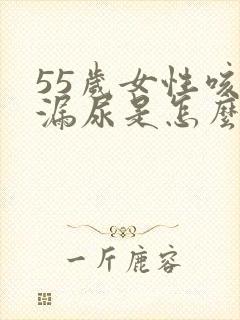 55歲女性咳
漏尿是怎麼
一斤鹿容